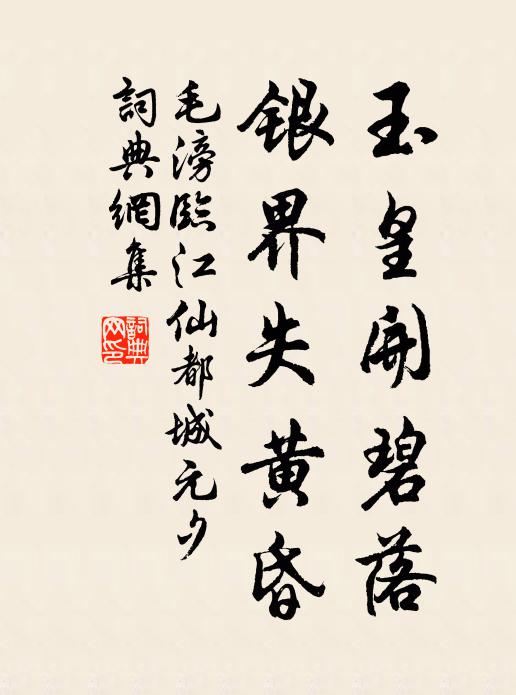 玉皇開碧落
銀界失黄昏
毛滂臨江仙都城元夕
詞典網集
詞典网印